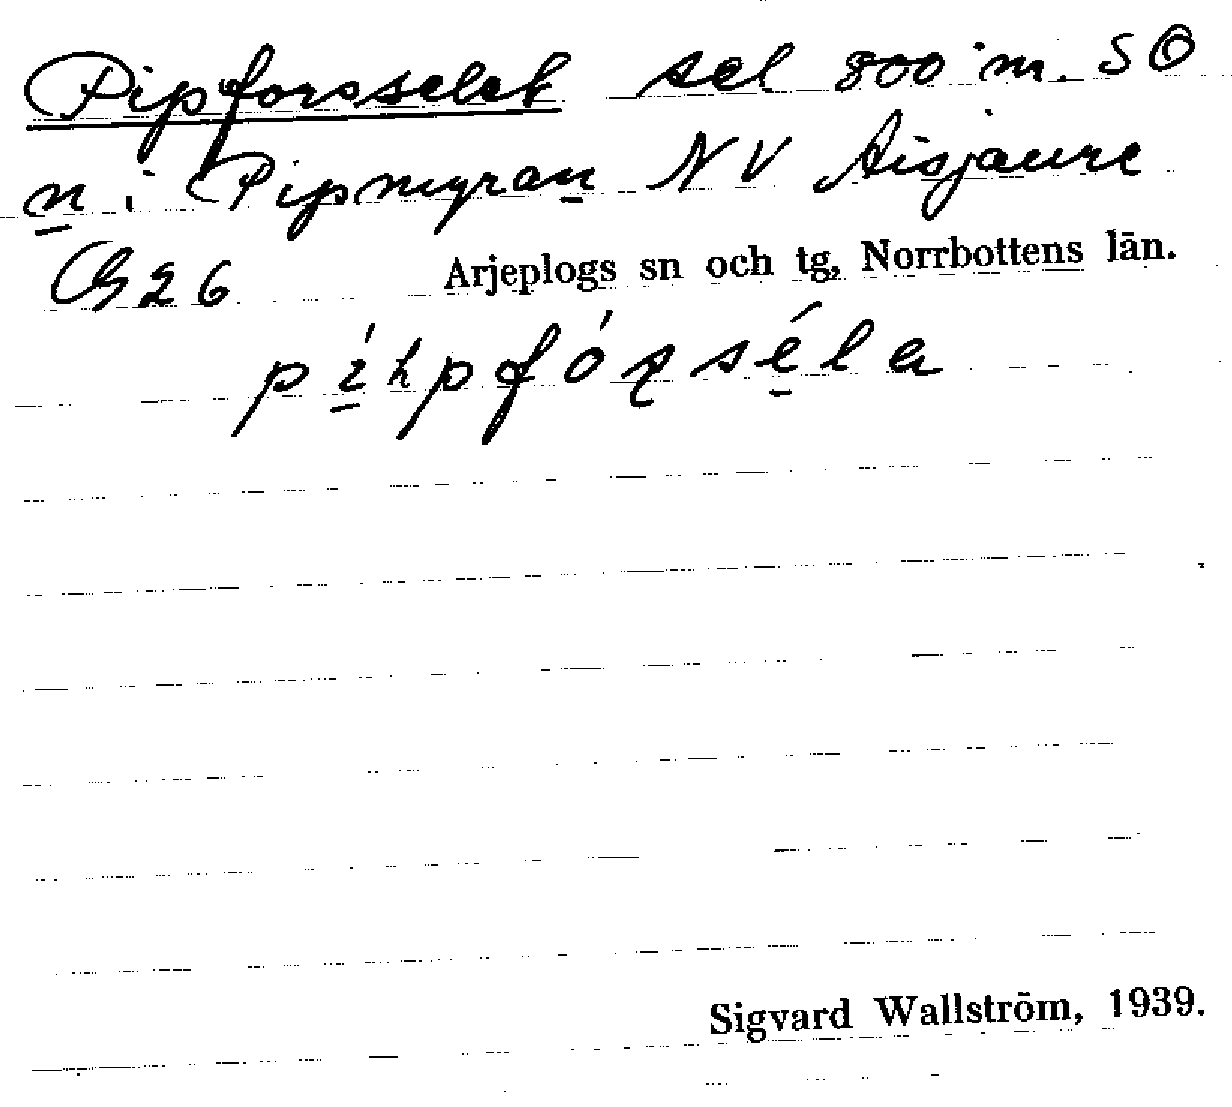 Pipforsselet sel 800 m. SÖ
n i Pipmyran NV Aisjaure
G 26 Arjeplogs sn och tg, Norrbottens län.
Sigvard Wallström, 1939.